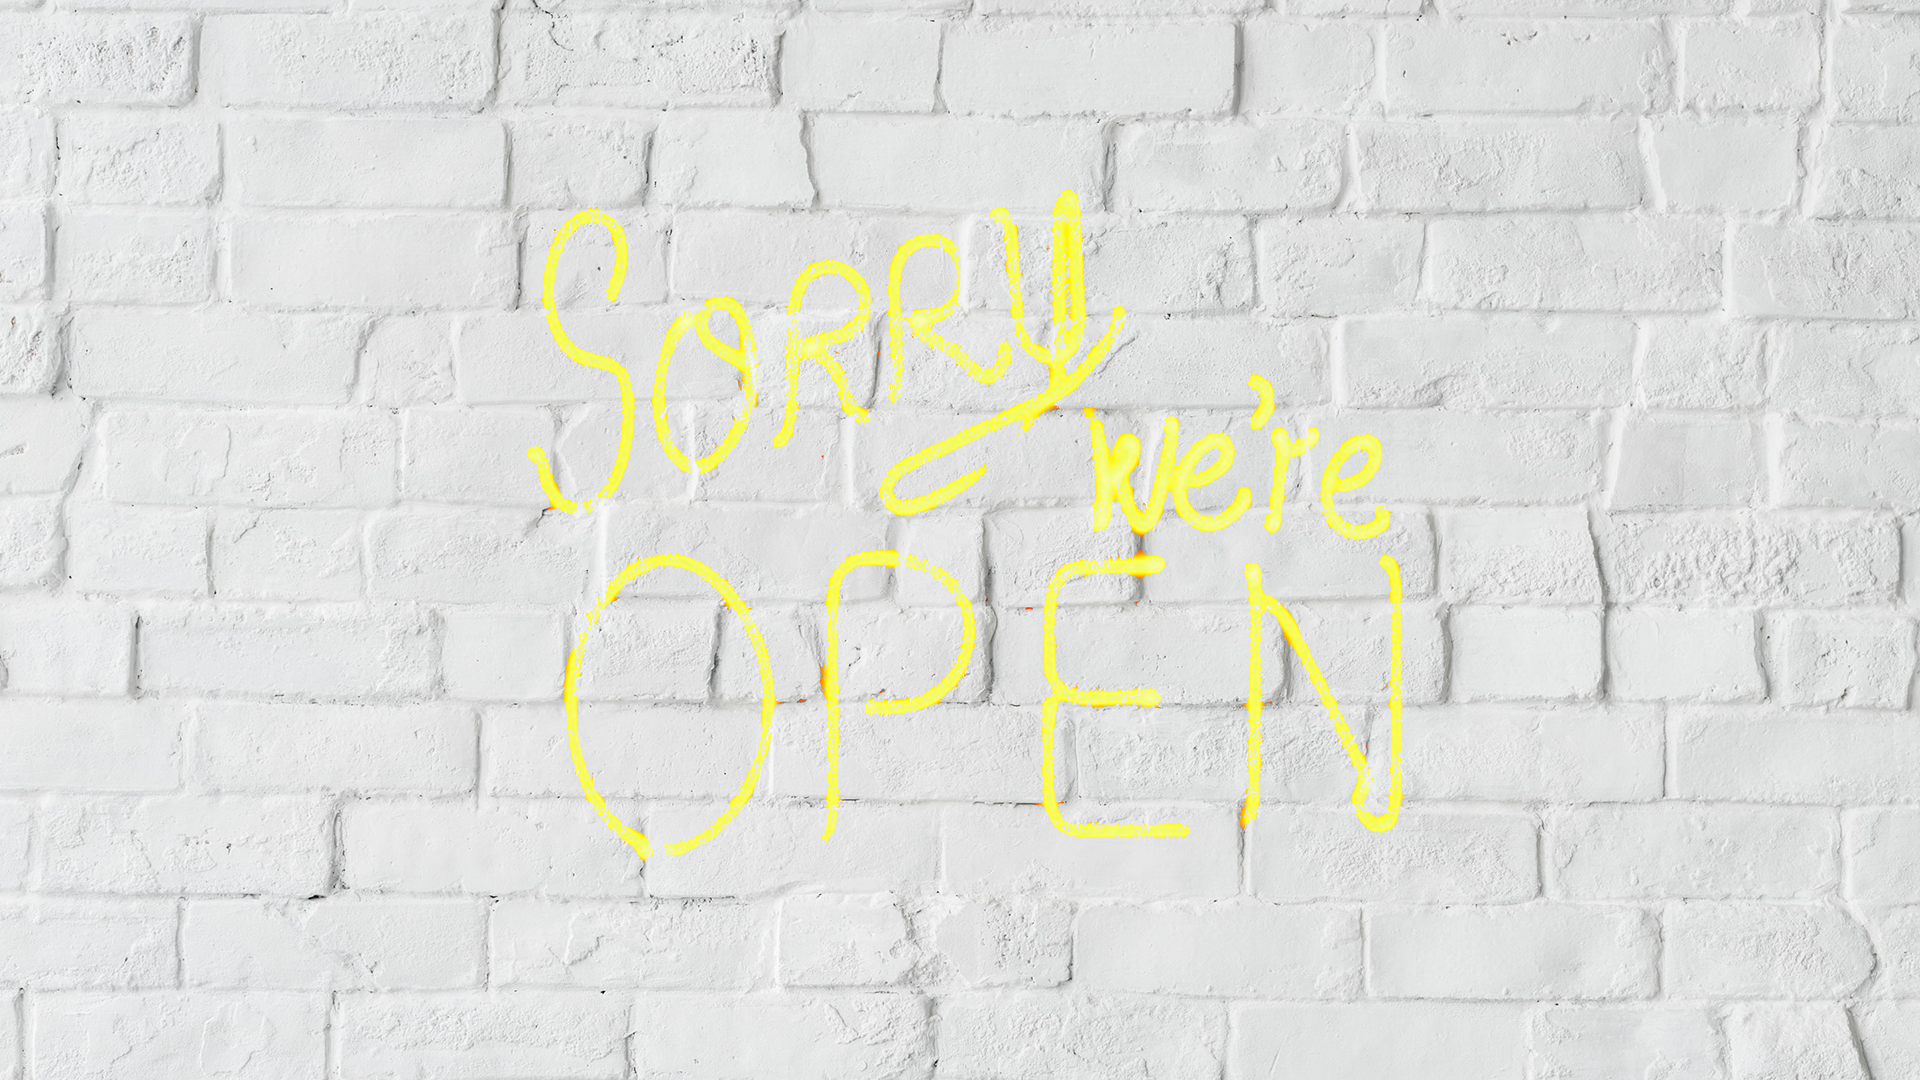 SORRY
we're
OPEN